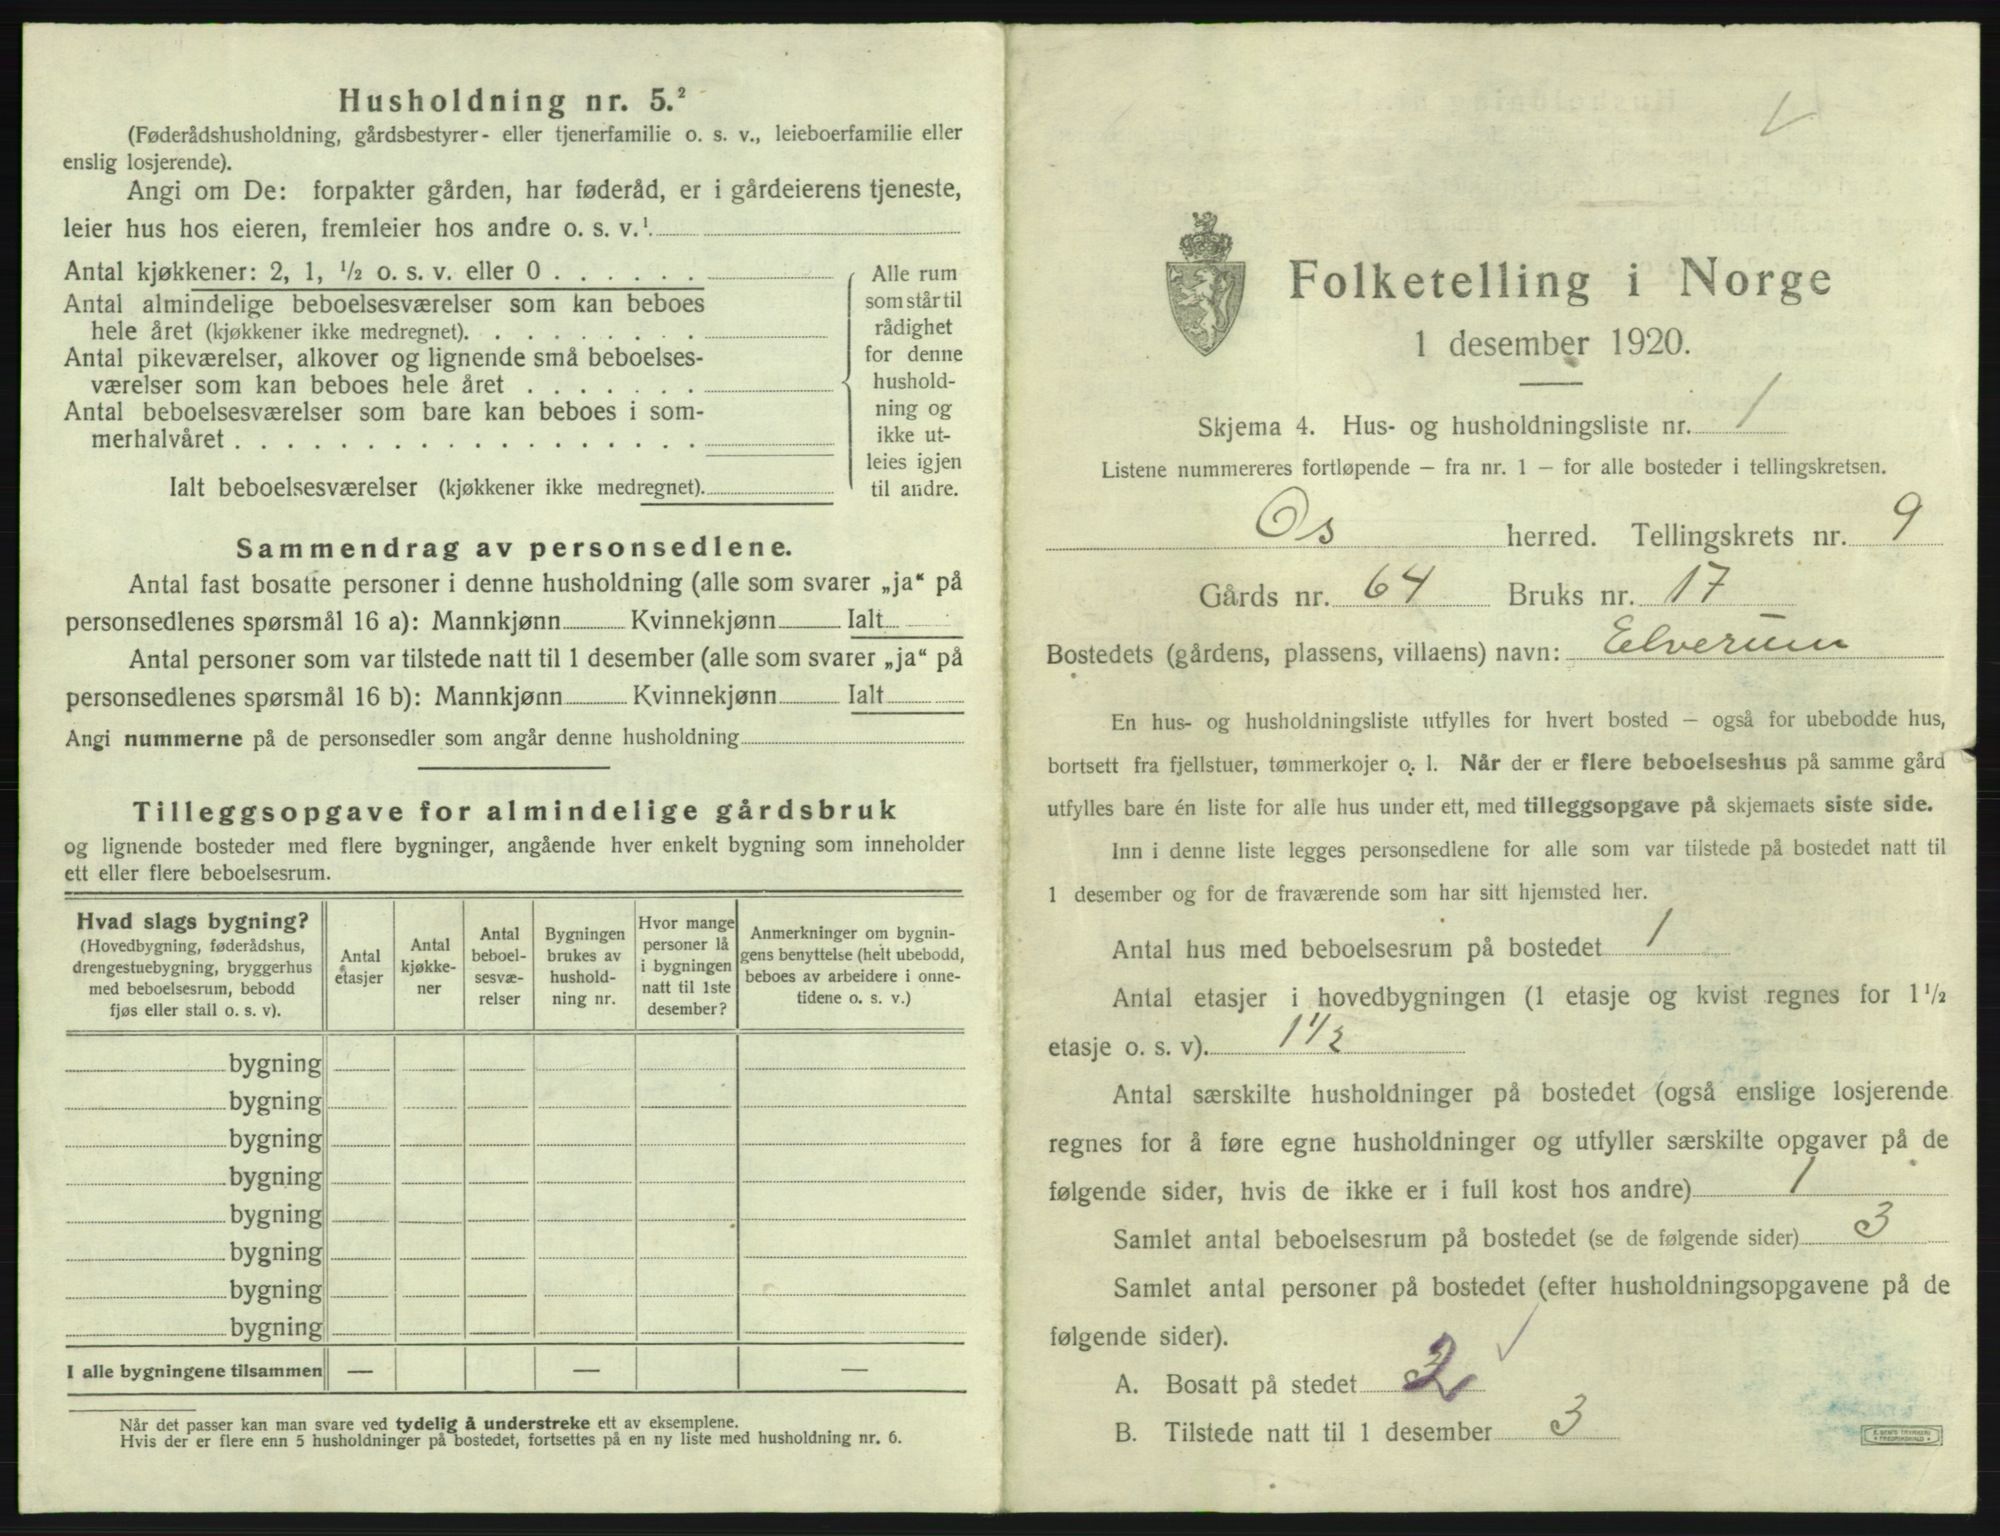 Husholdning nr. 5.²
(Føderådshusholdning, gårdsbestyrer- eller tjenerfamilie o. s. v., leieboerfamilie eller
enslig losjerende).
Angi om De: forpakter gården, har føderåd, er i gårdeierens tjeneste,
leier hus hos eieren, fremleier hos andre o. s. v.¹
Antal kjøkkener: 2, 1, ½ o. s. v. eller 0 . . . . . .
Antal almindelige beboelsesværelser som kan beboes
hele året (kjøkkener ikke medregnet). . . . . . . . .
Antal pikeværelser, alkover og lignende små beboelses-
værelser som kan beboes hele året . . . . . . .
Antal beboelsesværelser som bare kan beboes i som-
merhalvåret . . . . . . . . . . . . . . . . . .
Ialt beboelsesværelser (kjøkkener ikke medregnet).
Alle rum
som står til
rådighet
for denne
hushold-
ning og
ikke ut-
leies igjen
til andre.
Sammendrag av personsedlene.
Antal fast bosatte personer i denne husholdning (alle som svarer „ja“ på
personsedlenes spørsmål 16 a): Mannkjønn Kvinnekjønn Ialt
Antal personer som var tilstede natt til 1 desember (alle som svarer „ja“ på
personsedlenes spørsmål 16 b): Mannkjønn Kvinnekjønn Ialt
Angi nummerne på de personsedler som angår denne husholdning
Tilleggsopgave for almindelige gårdsbruk
og lignende bosteder med flere bygninger, angående hver enkelt bygning som inneholder
ett eller flere beboelsesrum.
Hvad slags bygning?
(Hovedbygning, føderådshus,
drengestuebygning, bryggerhus
med beboelsesrum, bebodd
fjøs eller stall o. s. v).
Antal
etasjer
Antal
kjøkke-
ner
Antal
beboel-
sesvæ-
relser
Bygningen
brukes av
hushold-
ning nr.
Hvor mange
personer lå
i bygningen
natt til 1ste
desember?
Anmerkninger om bygnin-
gens benyttelse (helt ubebodd,
beboes av arbeidere i onne-
tidene o. s. v.)
bygning
bygning
bygning
bygning
bygning
bygning
bygning
bygning
I alle bygningene tilsammen — — —
Når det passer kan man svare ved tydelig å understreke ett av eksemplene.
Hvis der er flere enn 5 husholdninger på bostedet, fortsettes på en ny liste med husholdning nr. 6.
Folketelling i Norge
1 desember 1920.
Skjema 4. Hus- og husholdningsliste nr. 1
Listene nummereres fortløpende – fra nr. 1 – for alle bosteder i tellingskretsen.
Os herred. Tellingskrets nr. 9
Gårds nr. 64 Bruks nr. 17
Bostedets (gårdens, plassens, villaens) navn: Elverum
En hus- og husholdningsliste utfylles for hvert bosted – også for ubebodde hus,
bortsett fra fjellstuer, tømmerkojer o. l. Når der er flere beboelseshus på samme gård
utfylles bare én liste for alle hus under ett, med tilleggsopgave på skjemaets siste side.
Inn i denne liste legges personsedlene for alle som var tilstede på bostedet natt til
1 desember og for de fraværende som har sitt hjemsted her.
Antal hus med beboelsesrum på bostedet 1
Antal etasjer i hovedbygningen (1 etasje og kvist regnes for 1½
etasje o. s. v). 1½
Antal særskilte husholdninger på bostedet (også enslige losjerende
regnes for å føre egne husholdninger og utfyller særskilte opgaver på de
følgende sider, hvis de ikke er i full kost hos andre) 1
Samlet antal beboelsesrum på bostedet (se de følgende sider) 3
Samlet antal personer på bostedet (efter husholdningsopgavene på de
følgende sider).
A. Bosatt på stedet 2
B. Tilstede natt til 1 desember 3